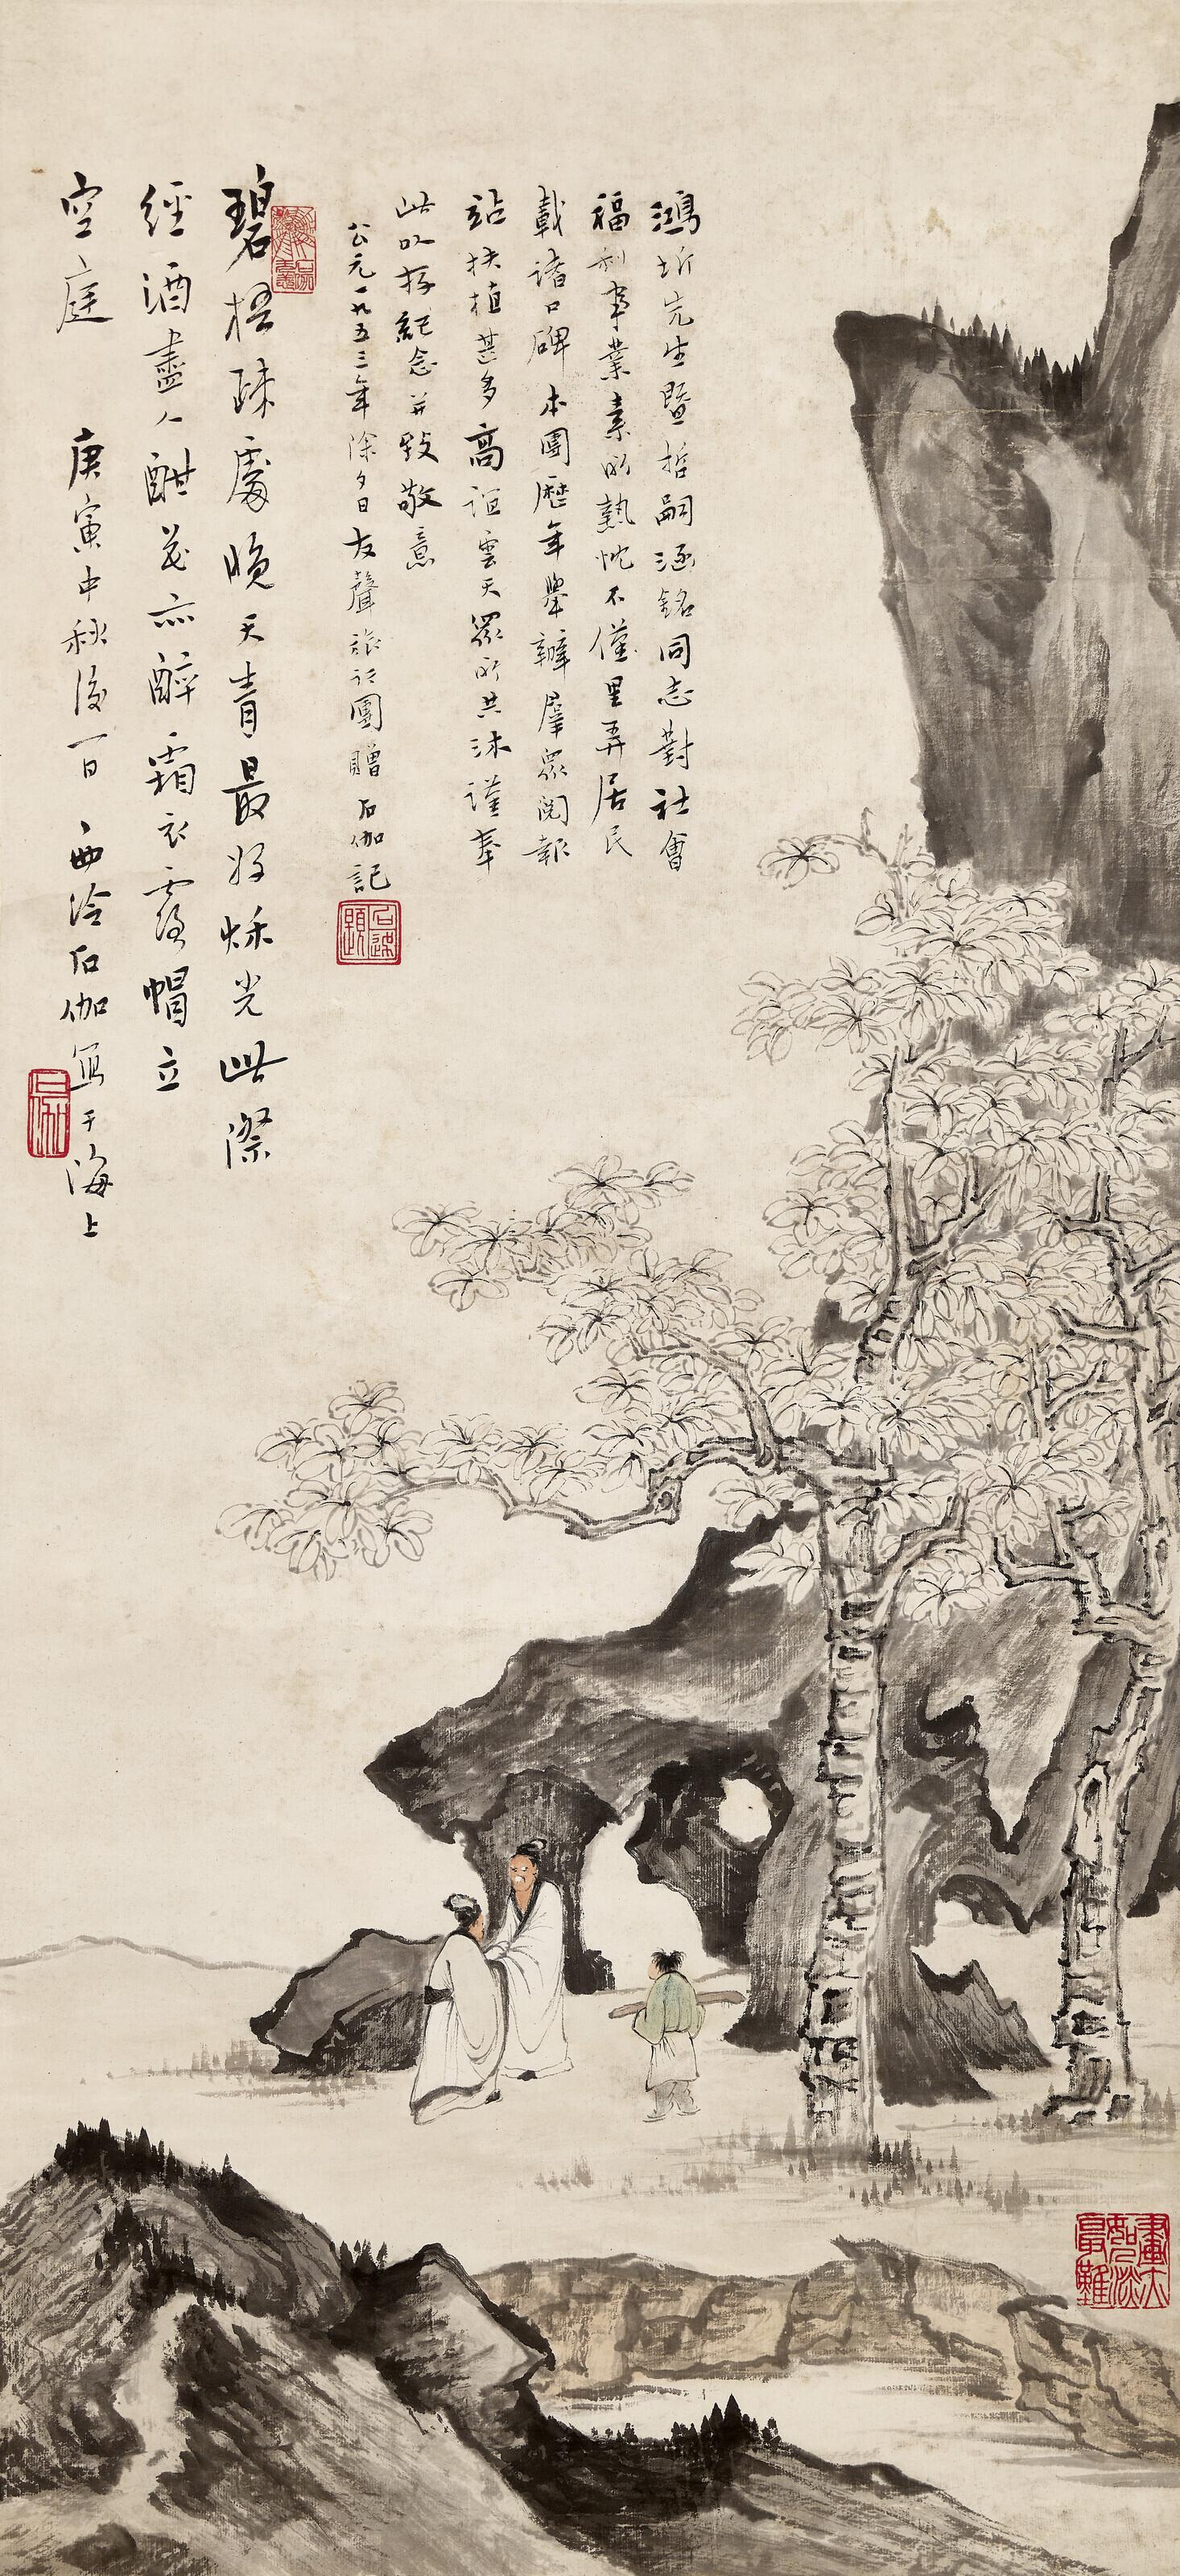 鴻圻先生暨哲嗣涵銘同志對社會
福利事業素所熱忱不僅里弄居民
載諸口碑本團歷年舉辦羣眾閱報
站扶植甚多高誼雲天眾所共沐謹奉
此以存記念并致敬意
公元一九五三年除夕日友聲旅行團贈 石伽記
碧梧疎處晚天青最好秌光此際
經酒盡人酣花亦醉霜衣露帽立
空庭 庚寅中秋後一日 西泠石伽寫于海上
畫大
如淡
最難